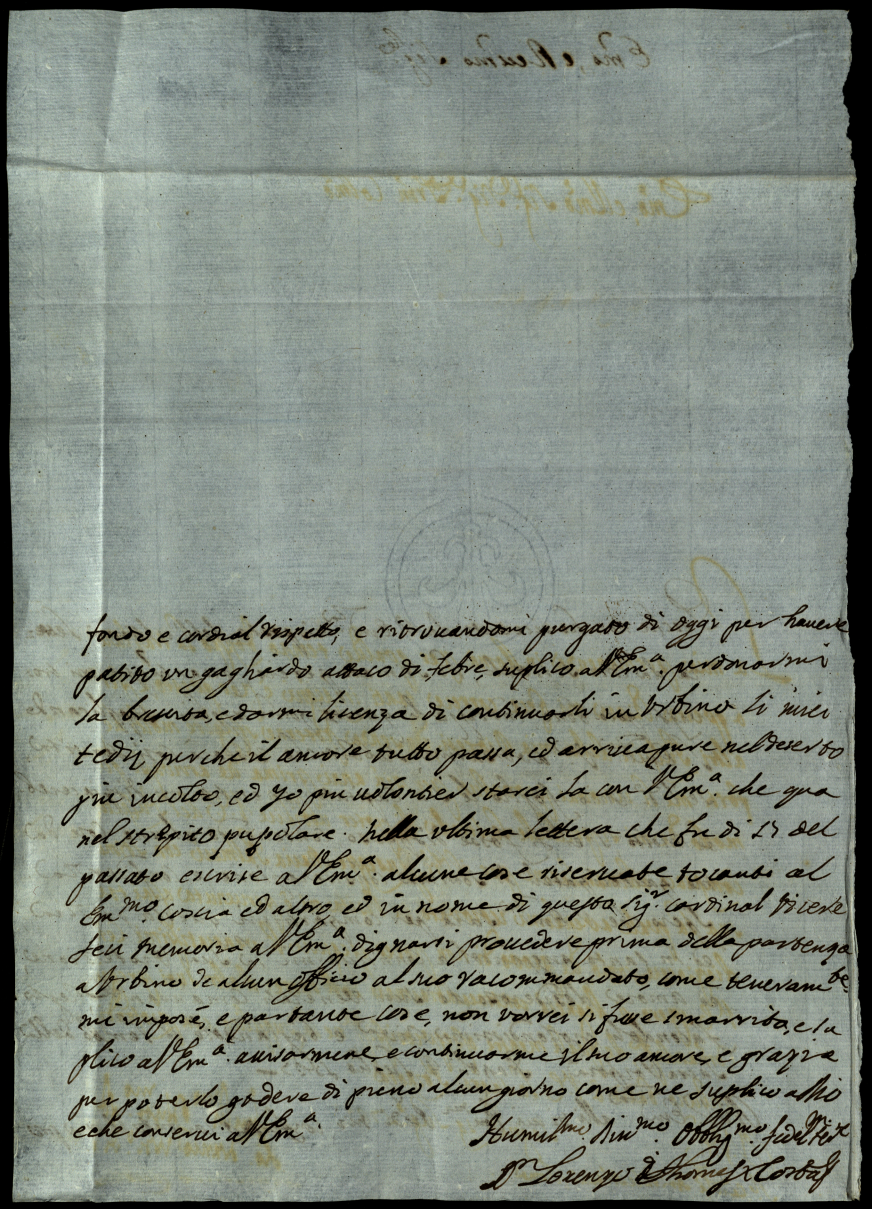 fondo e cordial rispetto, e ritrovandomi purgato di oggi per havere
patito un gagliardo attaco di febre, suplico a V Em.ª perdonarmi
la brevità, e darmi licenza di continuarli in Urbino li miei
tedij perche il amore tutto passa, ed arriva pure nel deserto
piu incolto, ed yo piu volontier starei la con V Em.ª che qua
nel strepito pupolare. Nella ultima lettera che fu di 17 del
passato escrise a V Em.ª alcune cose riservate tocanti al
Em.mo Coscia ed altro, ed in nome di questo Sig.r cardinal Vicerè
feci memoria a V Em.ª dignarsi provedere prima della partenza
a Urbino de alcun officio al suo racommandato, come
mi impose, e por tante cose, non vorrei si fusse smarrita, e su
plico a V Em.ª avisarmene, e continuarme il suo amore, e grazia
per poterlo godere di pieno alcun giorno come ne suplico a Dio
e che conservi a V Em.ª
Humil.mo Obblig.mo
D.n Lorenzo